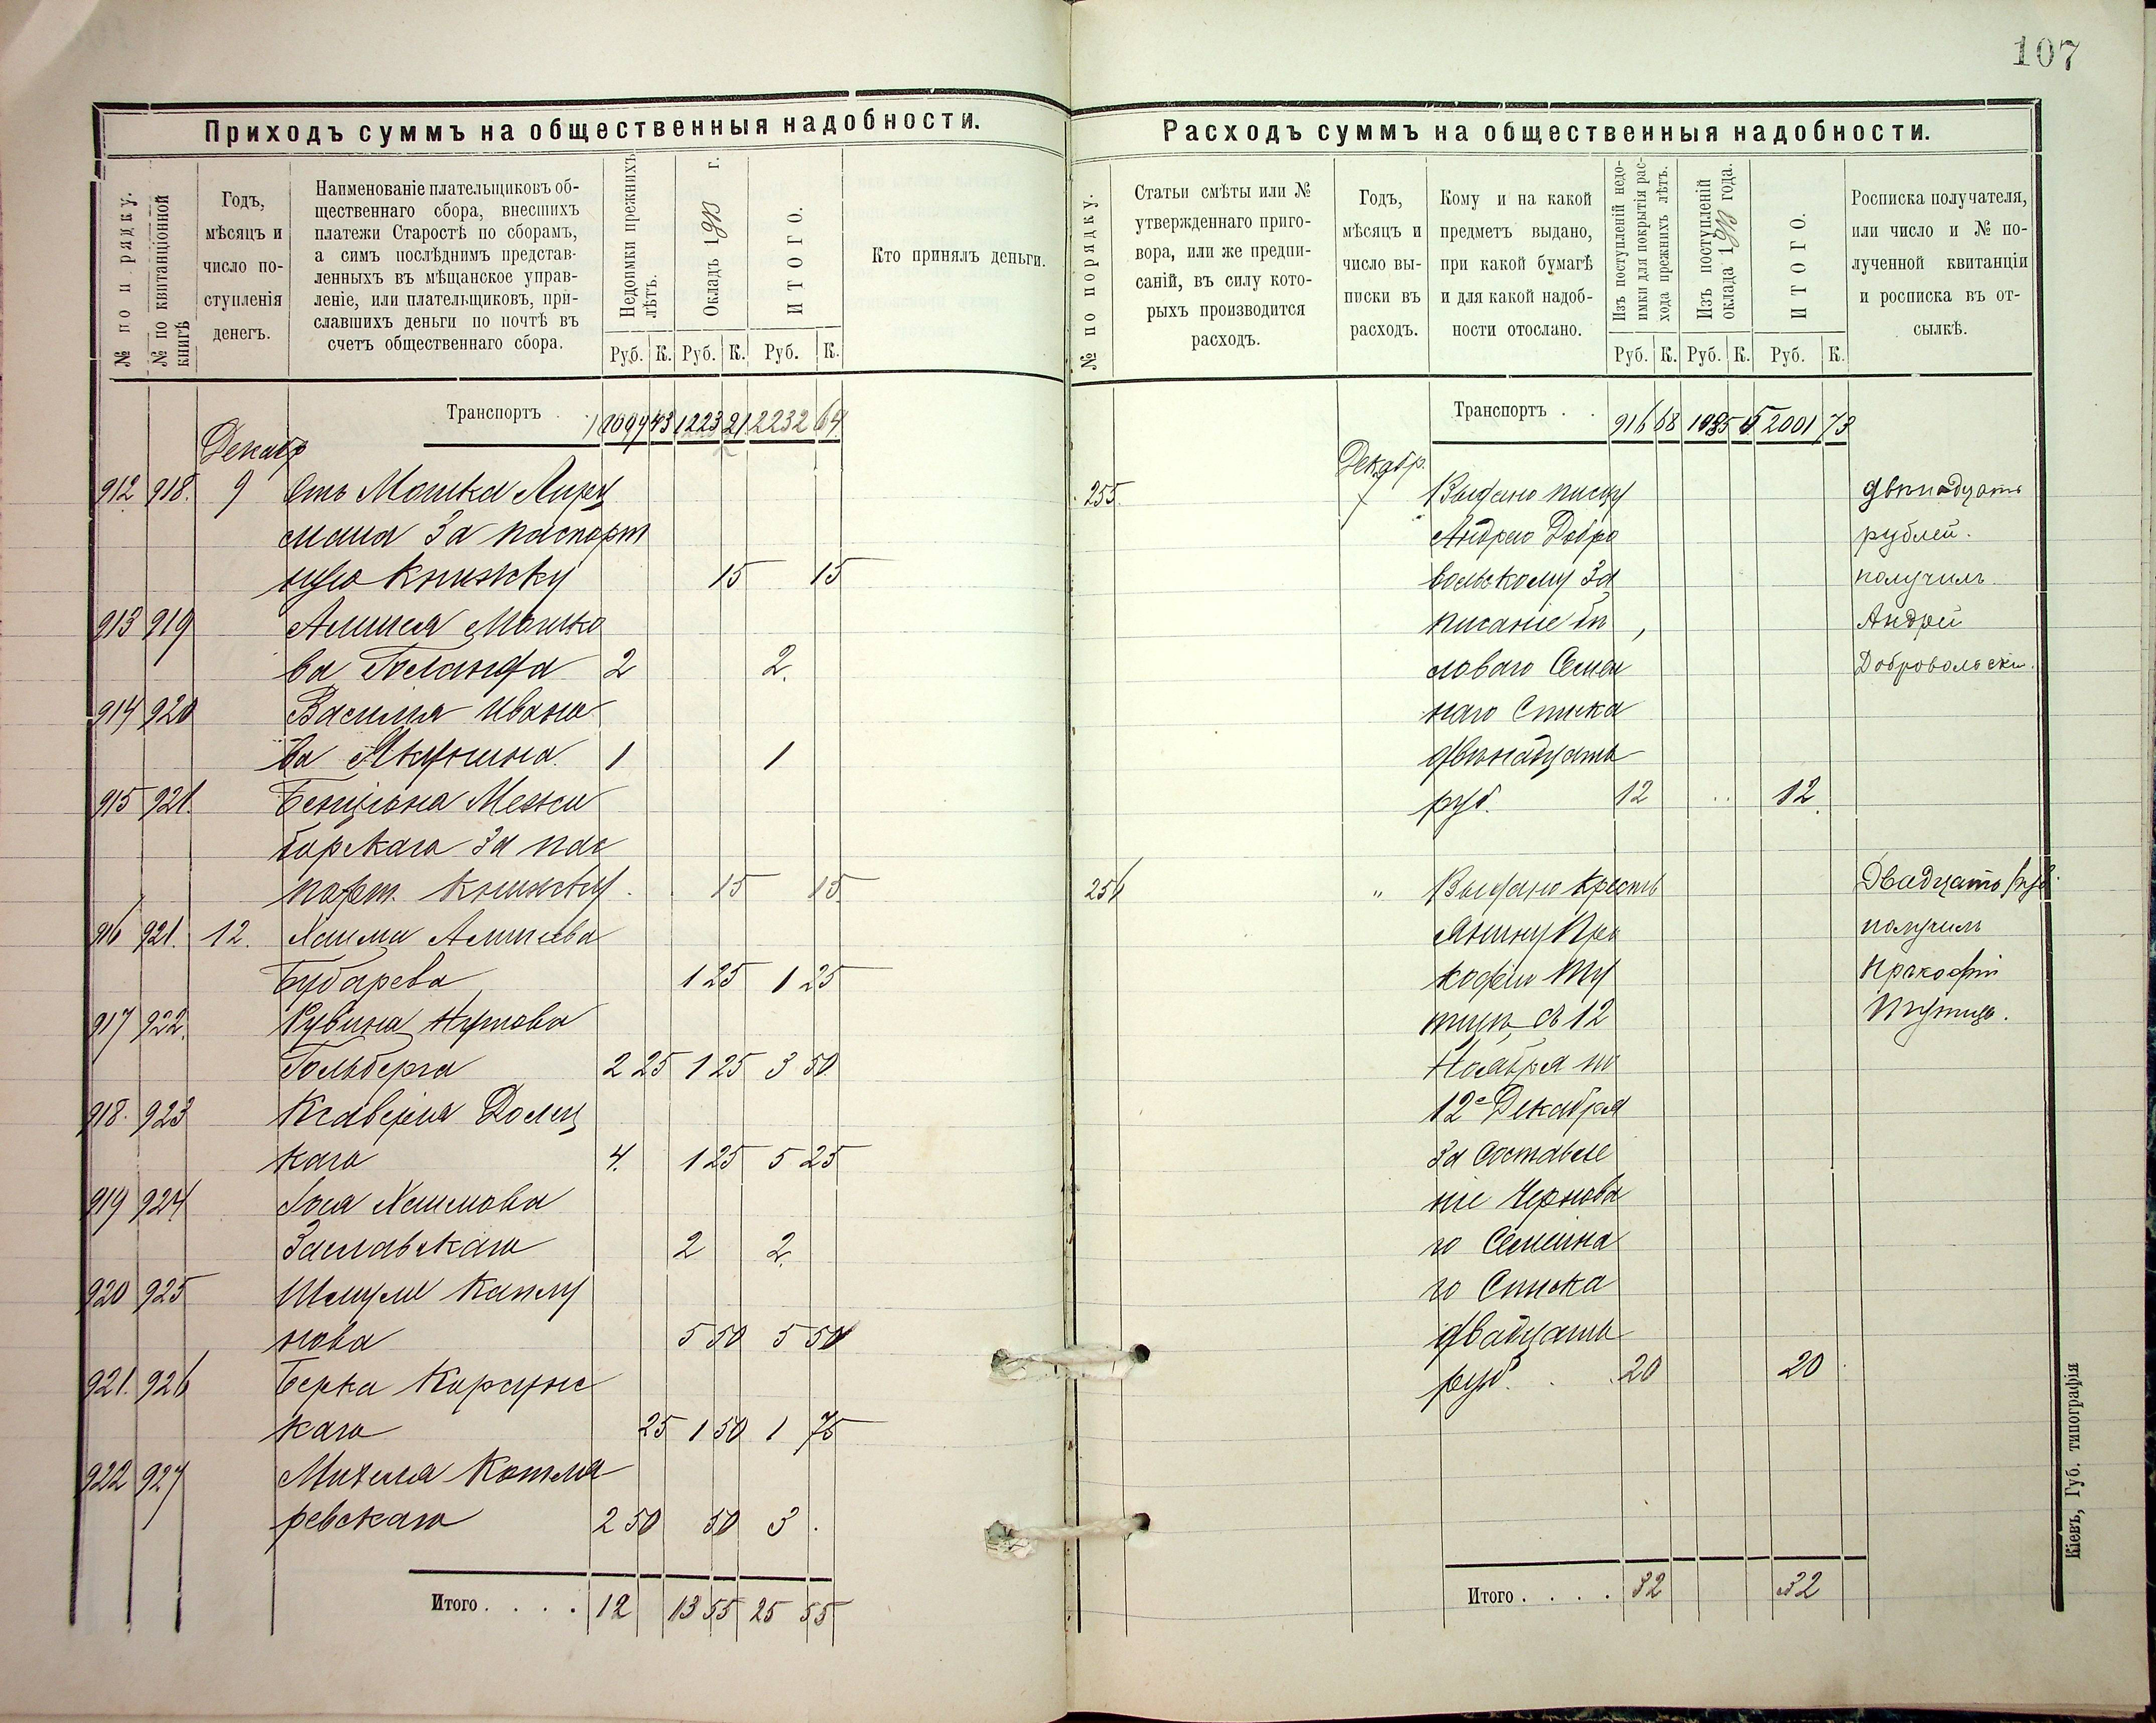 107
Приходъ суммъ на общественныя надобности.
№ по порядку.
№ по квитанціонной книгѣ
Годъ,
мѣсяцъ и
число по-
ступленія
денегъ.
Наименованіе плательщиковъ об-
щественнаго сбора, внесшихъ
платежи Старостѣ по сборамъ,
а симъ послѣднимъ представ-
ленныхъ въ мѣщанское управ-
леніе, или плательщиковъ, при-
славшихъ деньги по почтѣ въ
счетъ общественнаго сбора.
Недоимки прежнихъ
лѣтъ.
Окладъ 1893 г.
ИТОГО.
Руб. К. Руб. К. Руб. К.
Кто принялъ деньги.
Транспортъ 1223 21 2232 64
Декабр
912 918. 9 Отъ Мошка
мана За паспорт
ную Книжку 15 15
913 919 Мошко
ва 2 2.
914 920 Василія Ивано
ва Якунина 1 1
915 921. Бенціона Межи
борскаго За пас
порт. Книжку 15 15
916 921. 12. Хаима
Бударева 1 25 1 25
917 922. Рувина
Гольберга 2 25 1 25 3 50
918. 923 Ксаверія Долец
каго 4. 1 25 5 25
919 924 Хаимова
Заславскаго 2 2.
920 925 Шмуля Каплу
нова 5 50 5 50
921. 926 Берка Корсунс
каго 25 1 50 1 75
922 927 Михеля Котля
ревскаго 2 50 50 3
Итого . . . . 12 13 55 25 55
Расходъ суммъ на общественныя надобности.
№ по порядку.
Статьи смѣты или №
утвержденнаго приго-
вора, или же предпи-
саній, въ силу кото-
рыхъ производится
расходъ.
Годъ,
мѣсяцъ и
число вы-
писки въ
расходъ.
Кому и на какой
предметъ выдано,
при какой бумагѣ
и для какой надоб-
ности отослано.
Изъ поступленій недо-
имки для покрытія рас-
хода прежнихъ лѣтъ.
Изъ поступленій
оклада 1893 года.
ИТОГО.
Руб. К. Руб. К. Руб. К.
Росписка получателя,
или число и № по-
лученной квитанціи
и росписка въ от-
сылкѣ.
Транспортъ . . 916 68 1085 5 2001 73
Декабр.
255. Выдано писцу
Андрею Добро
вольскому За
писаніе бѣ
ловаго Семей
наго Списка
двѣнадцать
руб. 12 12
двѣнадцать
рублей.
получилъ
Андрей
Добровольскі
256 " Выдано Кресть
янину Про
кофію Ту
пицѣ съ 12
Ноября по
12е Декабря
За Составле
ніе Чернова
го Семейна
го Списка
двадцать
руб. 20 20
Двадцать руб.
получилъ
Прокофій
Тупица.
Итого . . . . 32 32
Кіевъ, Губ. типографія